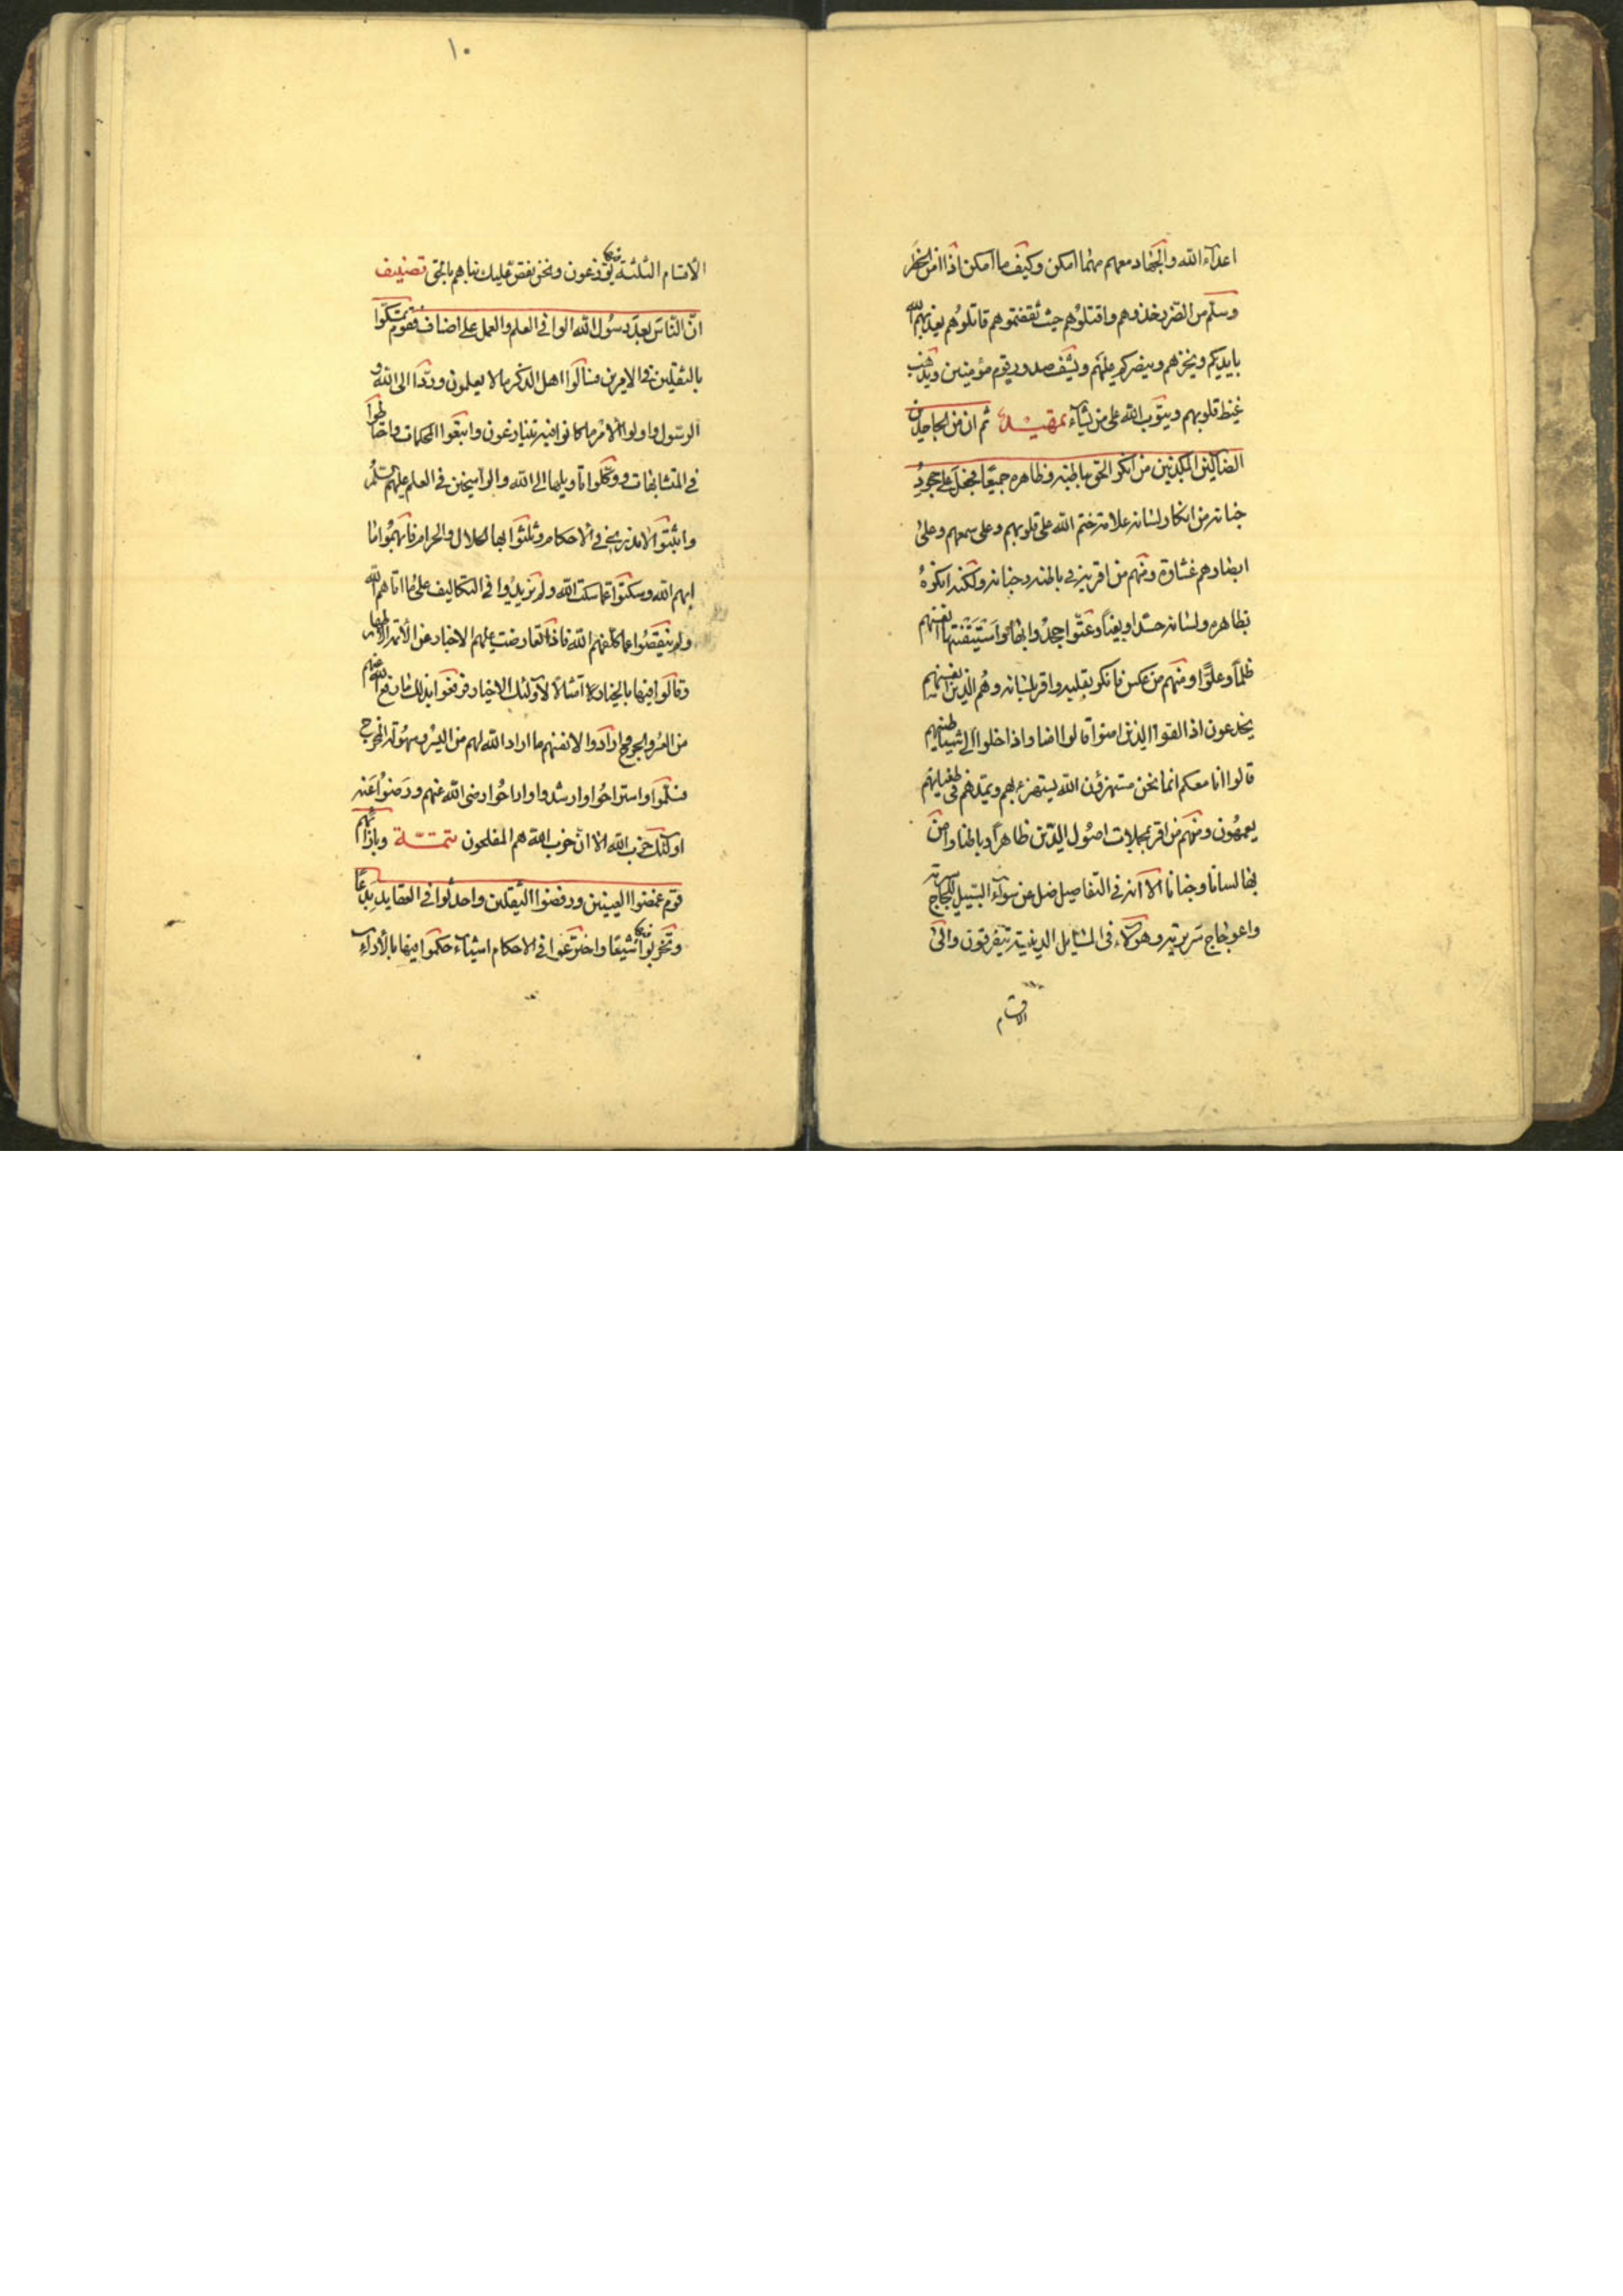 اعداء الله والجهاد معهم مهما امكن وكيف ما امكن اذا امن الخطر
وسلم من الضرر فخذوهم واقتلوهم حيث ثقفتموهم قاتلوهم يعذبهم الله
بايديكم ويخزهم وينصركم عليهم ويشف صدور قوم مؤمنين ويذهب
غيظ قلوبهم ويتوب الله على من يشاء تمهيد ثم ان من الجاحدين
الضالين المكذبين من انكر الحق بباطنه وظاهره جميعا فجعل على جحود
جنانه من انكار لسانه علامة ختم الله على قلوبهم وعلى سمعهم وعلى
ابصارهم غشاوة ومنهم من اقر به في باطنه وجنانه ولكنه انكره
بظاهره ولسانه حسدا وبغيا وعتوا جحدوا بها واستيقنتها انفسهم
ظلما وعلوا ومنهم من عكس فانكر بقلبه واقر بلسانه وهم الذين
يخدعون اذا لقوا الذين امنوا قالوا امنا واذا خلوا الى شياطينهم
قالوا انا معكم انما نحن مستهزؤن الله يستهزء بهم ويمدهم في طغيانهم
يعمهون ومنهم من اقر بمجملات اصول الدين ظاهرا وباطنا وامن
بها لسانا وجنانا الا انه في التفاصيل ضل عن سواء السبيل للجاج
واعوجاج سريرته وهؤلاء في المسائل الدينية يتفرقون والى
الاقسام
١٠
الاقسام الثلثة فيها يوزعون ونحن نقص عليك نباهم بالحق تصنيف
ان الناس بعد رسول الله الوا في العلم والعمل على اصناف فقوم تمسكوا
بالثقلين في الامرين فسألوا اهل الذكر ما لا يعلمون وردوا الى الله و
الرسول واولوا الامر ما كانوا فيه يتنازعون واتبعوا المحكمات واحتاطوا
في المتشابهات ووكلوا تاويلها الى الله والراسخين في العلم عليهم السلم
واثبتوا الامر في الاحكام وثلثوا بها الحلال والحرام فابهموا ما
ابهم الله وسكتوا عما سكت الله ولم يزيدوا في التكاليف على ما اتاهم الله
ولم ينقصوا عما كلفهم الله فاذا تعارضت عليهم الاخبار عن الائمة الاطهار
وقالوا فيها بالخيار امتثالا لاولئك الاخيار فرفعوا بذلك ما رفع الله عنهم
من العسر والحرج وارادوا لانفسهم ما اراد الله لهم من اليسر وسهولة المخرج
فسلموا واستراحوا وارشدوا واراحوا رضى الله عنهم ورضوا عنه
اولئك حزب الله الا ان حزب الله هم المفلحون تتمة وبازائهم
قوم غمضوا العينين ورفضوا الثقلين واحدثوا في العقايد بدعا
وتحزبوا فيها شيعا واخترعوا في الاحكام اشياء حكموا فيها بالاراء